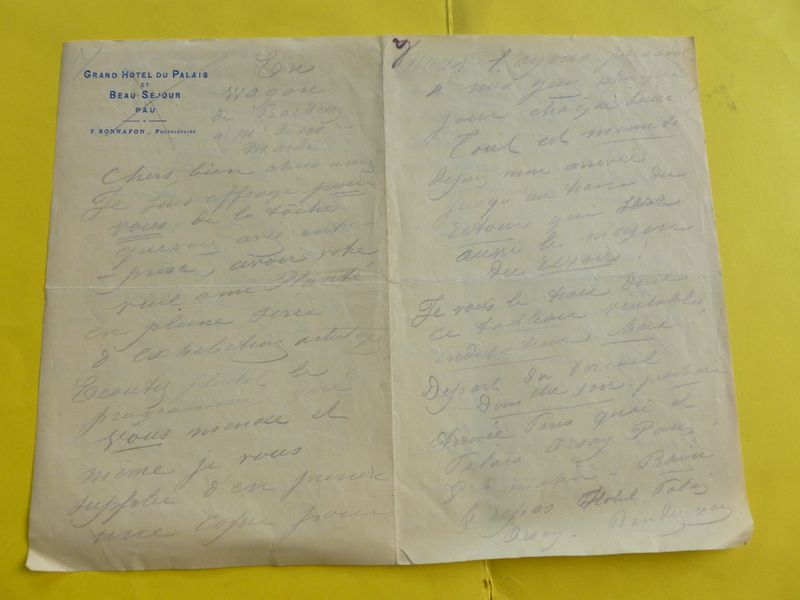 GRAND HÔTEL DU PALAIS
ET
BEAU SÉJOUR
PAU
F. BONNAFON, PROPRIÉTAIRE
En
wagon
de Bordeaux
à Mr & Mme
Chers, bien chers amis
Je suis effrayé pour
vous, de la tâche
que vous avez entre-
-prise, avoir votre
vieil ami Planté
en pleine série
d'exhibitions artistiques
Ecoutez plutôt le
programme qui
vous menace et
même je vous
supplie d'en prendre
une copie pour
2
nous
à
jour chaque heure!
Tout est minuté
depuis mon arrivée
jusqu'au train du
retour qui sera
aussi le moyen
du revoir!
Je vous le trace donc
ce tableau véritable
indicateur Chaix!
Départ du
Dimanche soir prochain
Arrivée Paris quai et
Palais Orsay Paris
8 h matin. Bain
& repas Hotel Palais
Orsay. Rendez vous